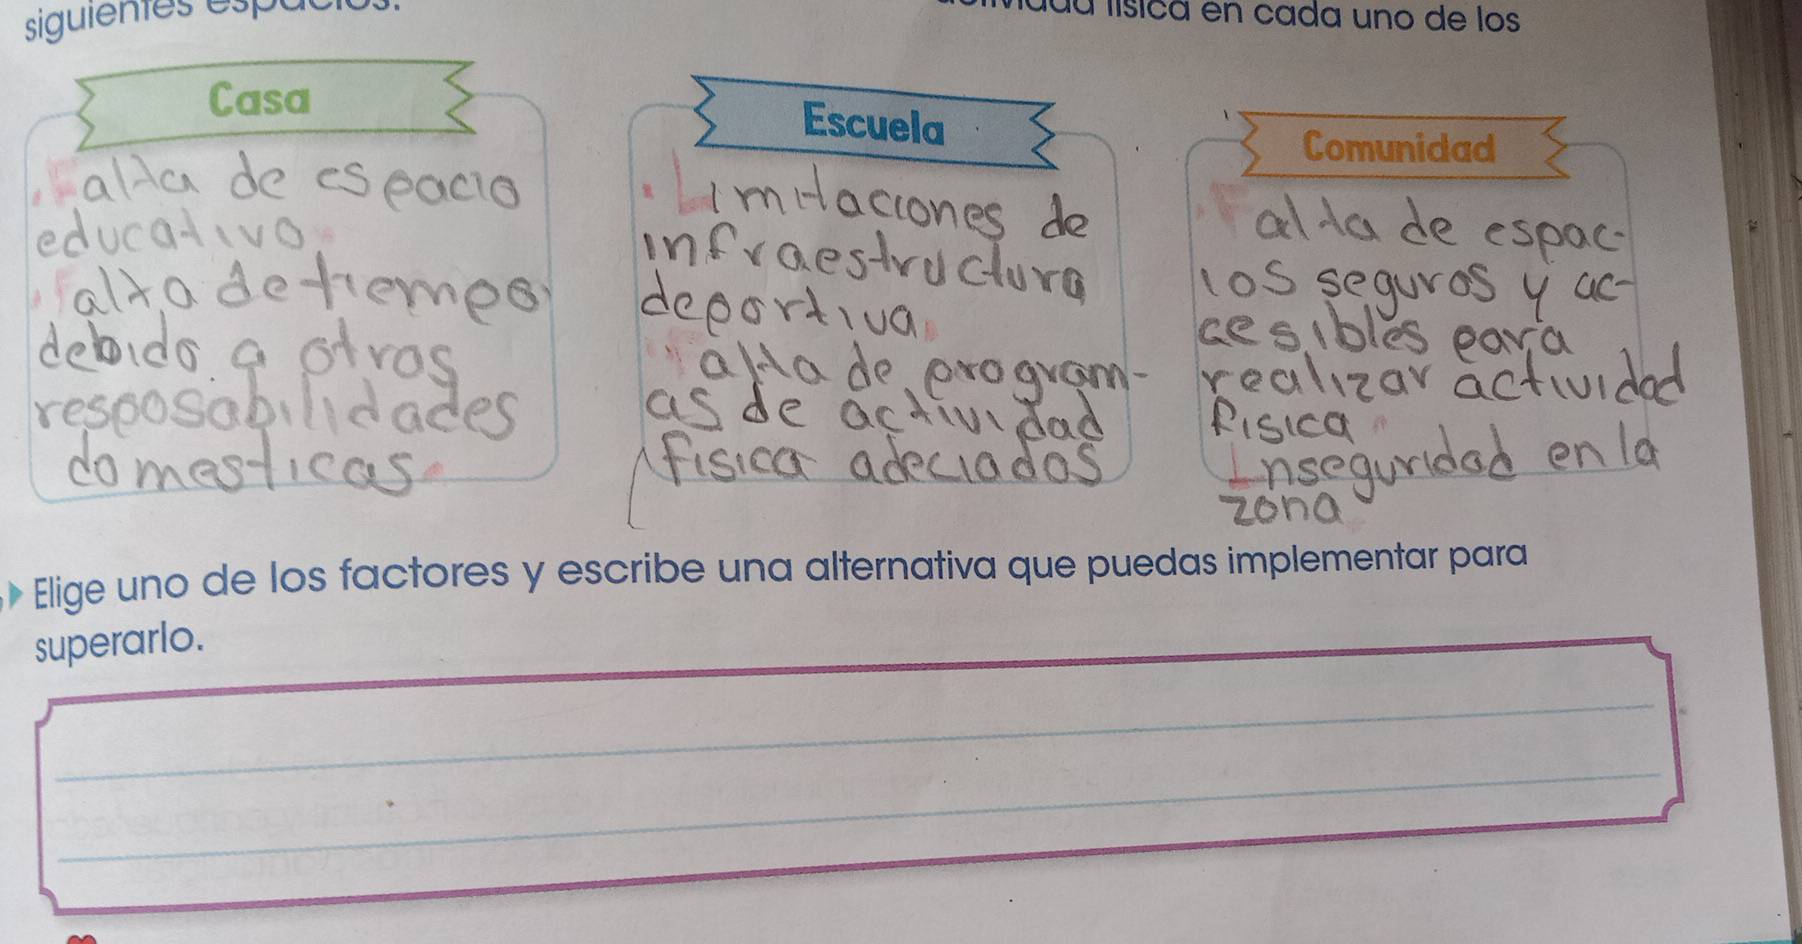 siguientes espacios.
física en cada uno de los
Casa
Falta de espacio
educativo
Falta de tiempo
debido a otras
resposabilidades
domesticas
Escuela
Limitaciones de
infraestructura
deportiva
Falta de program-
as de actividad
física adeciados
Comunidad
Falta de espac-
ios seguros y ac-
cesibles para
realizar actividad
física
Inseguridad en la
zona
Elige uno de los factores y escribe una alternativa que puedas implementar para
superarlo.